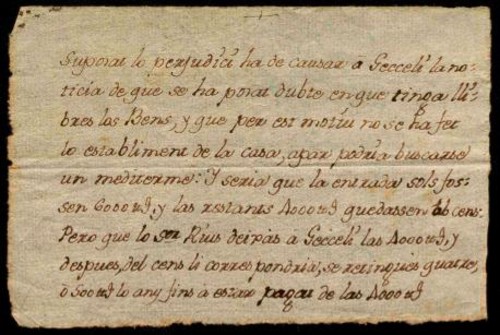 Suposat lo perjudici ha de causar a Geccelí la no-
ticia de que se ha posat dubte en que tinga lli-
bres los Bens, y que per est motiu no se ha fet
lo establiment de la casa, apar podria buscarse
un mediterme: Y seria que la entrada sols fos-
sen 6000 ll, y las restants 4000 ll quedassen ab cens.
Pero que lo Sr Rius deixás a Geccelí las 4000 ll, y
despues, del cens li correspondria, se retingués quatre,
ó 500 ll lo any fins á estar pagat de las 4000 ll